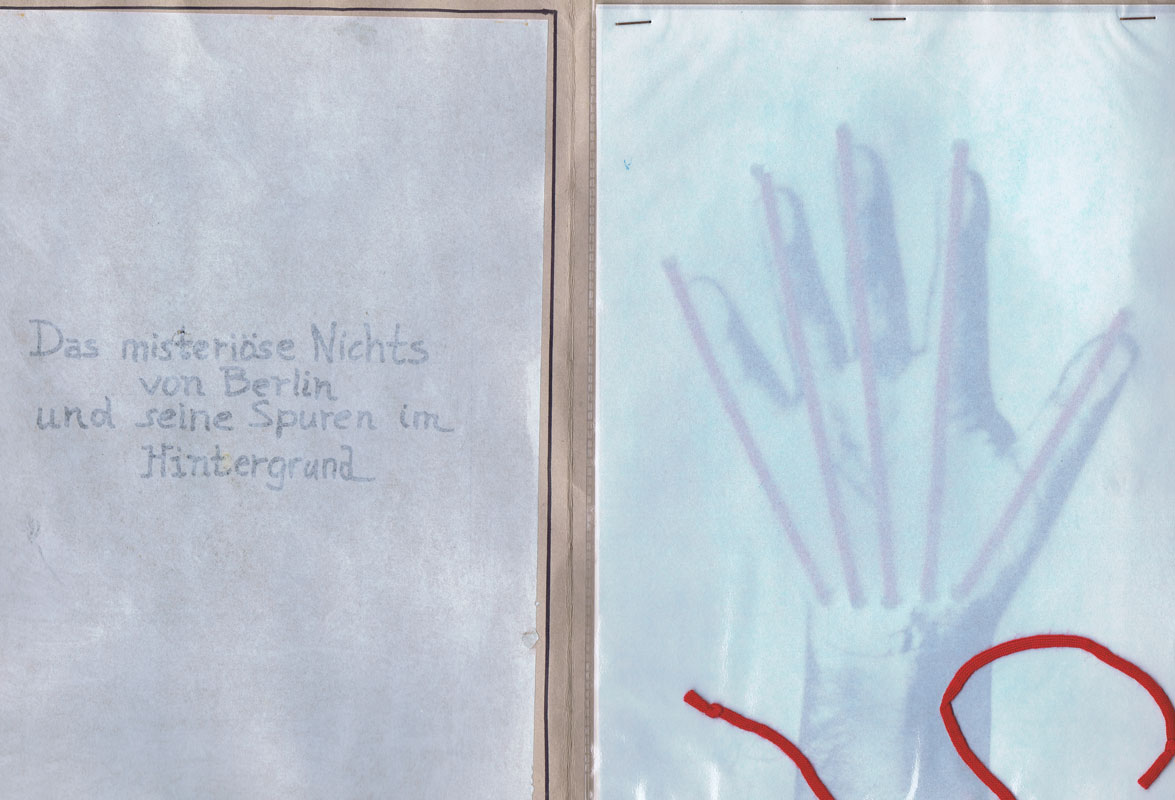 Das misteriöse Nichts
von Berlin
und seine Spuren im
Hintergrund